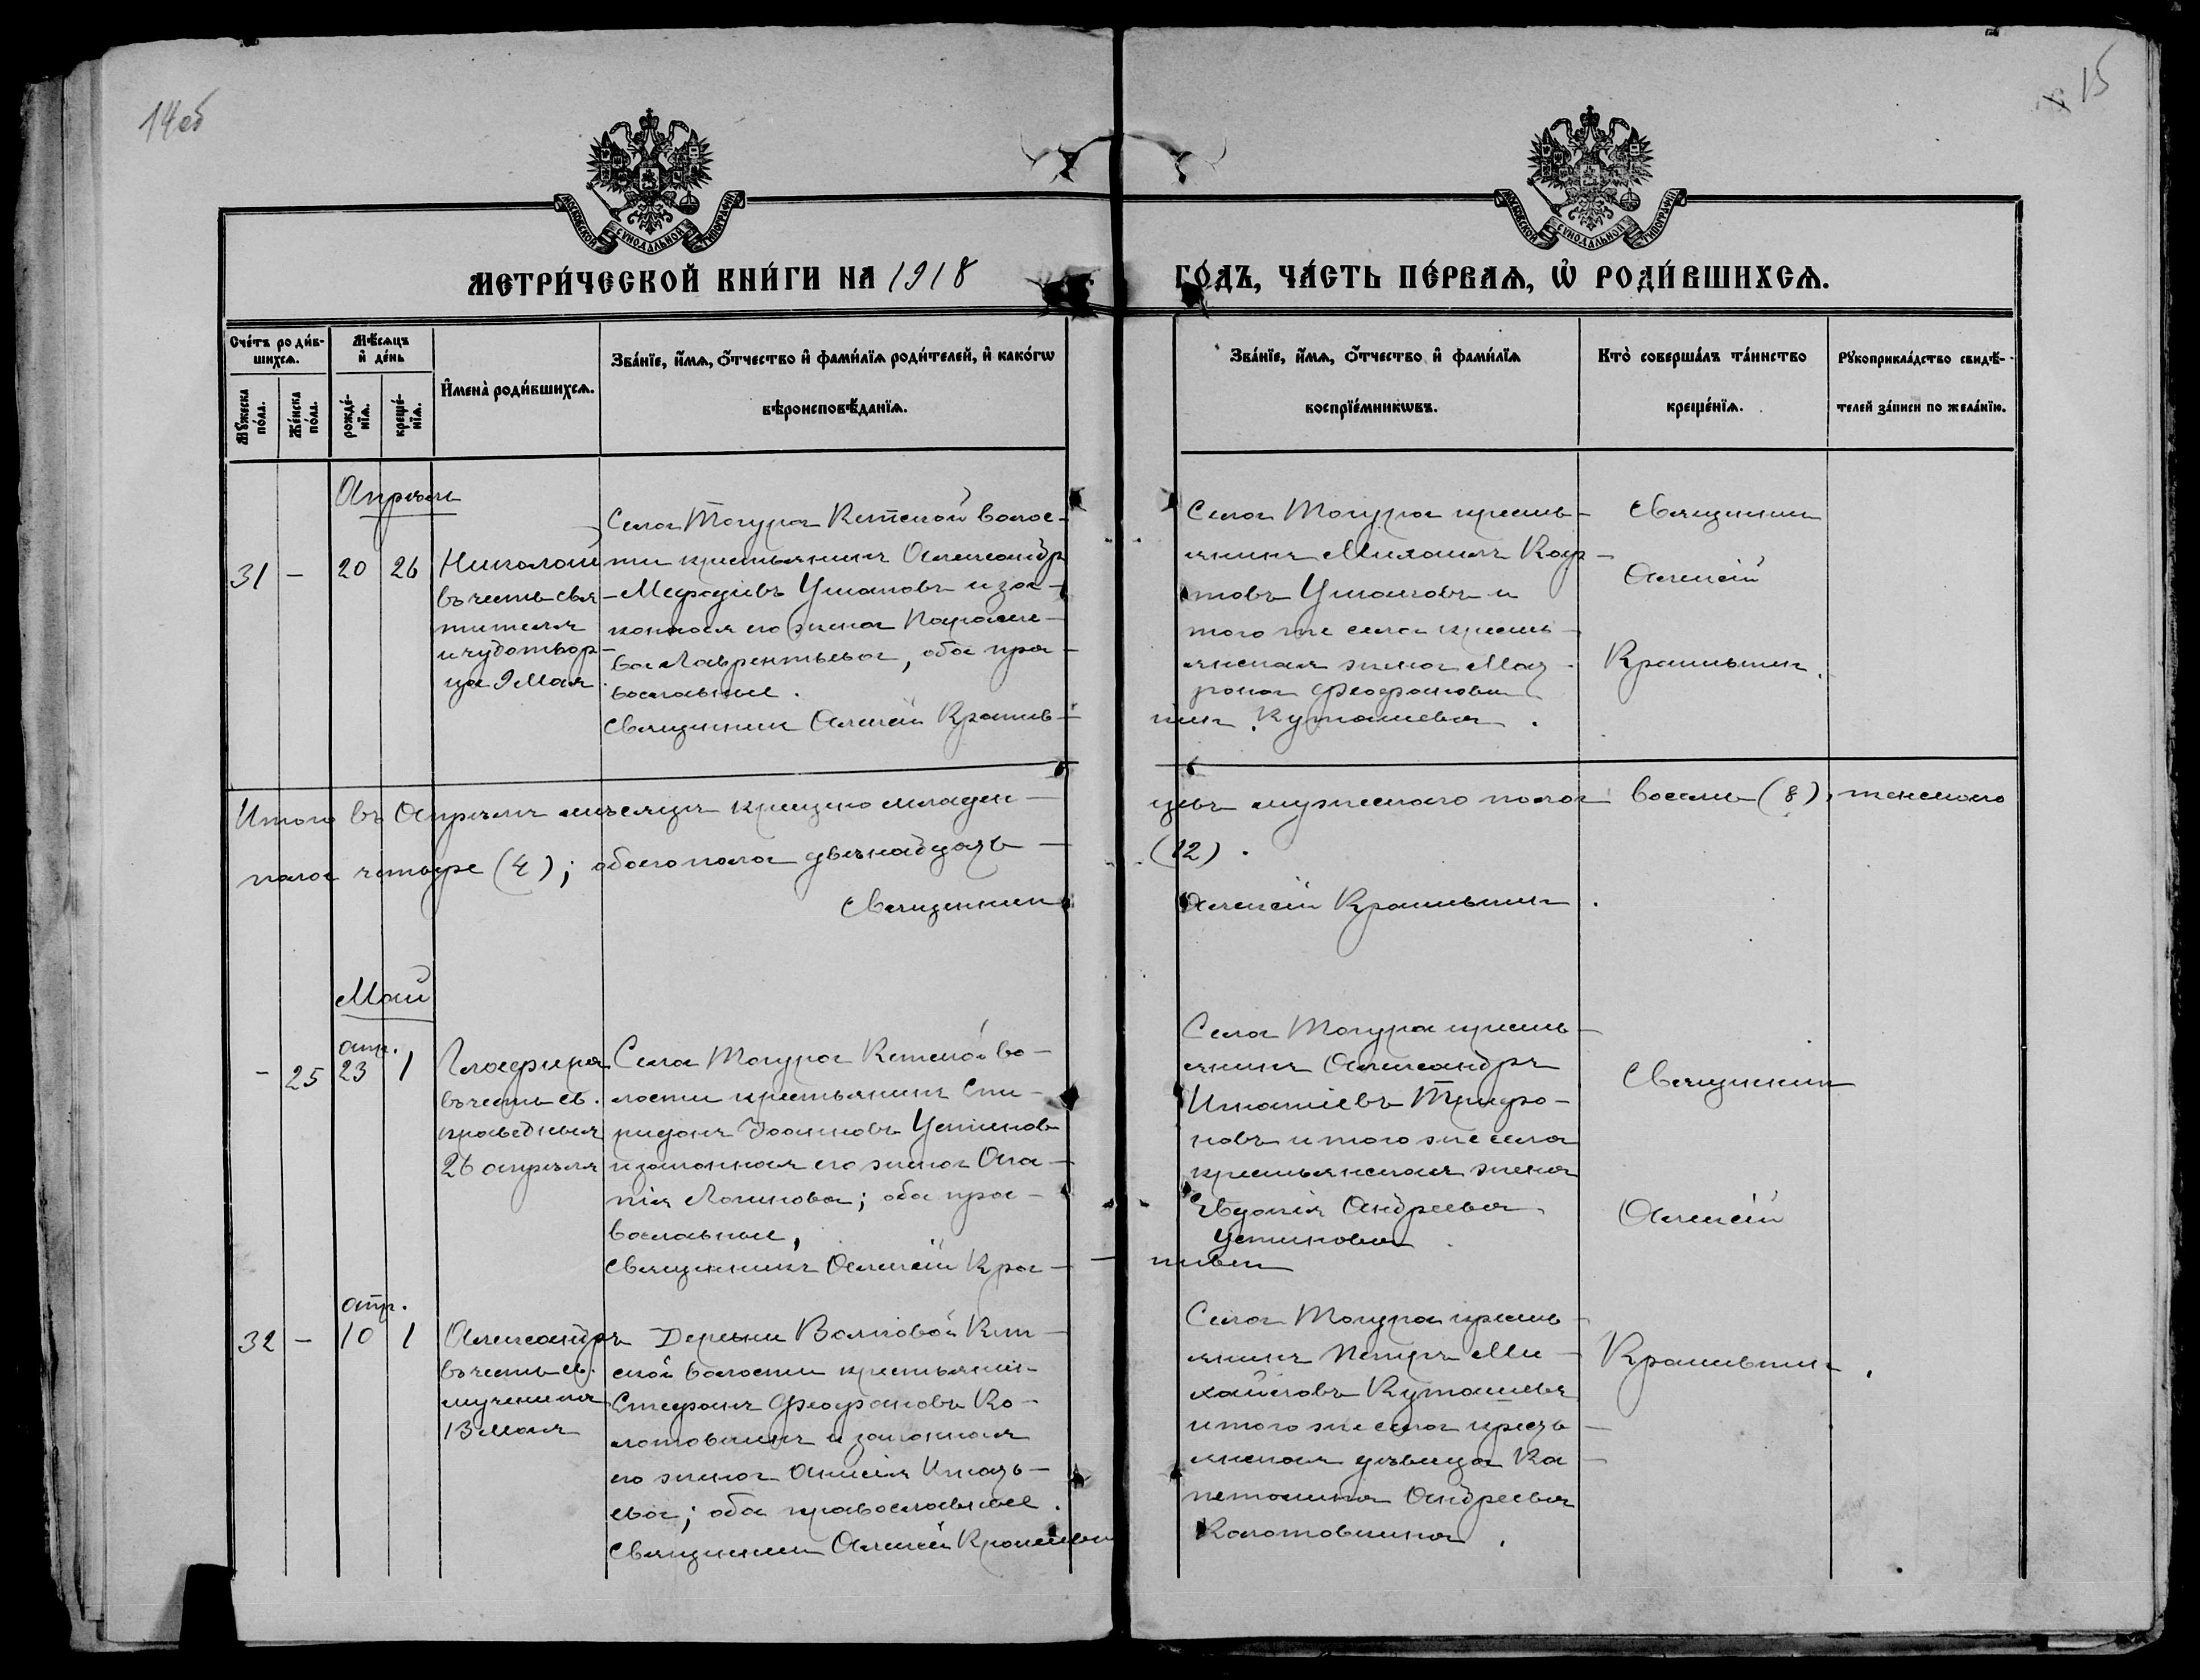 14об
15
МОСКОВСКОЙ СѴНОДАЛЬНОЙ ТИПОГРАФІИ
МОСКОВСКОЙ СѴНОДАЛЬНОЙ ТИПОГРАФІИ
МЕТРИ́ЧЕСКОЙ КНИ́ГИ НА 1918
ГО́ДЪ, ЧА́СТЬ ПЕ́РВАѦ, Ѡ РОДИ́ВШИХСѦ.
Сче́тъ роди́в-
шихсѧ.
Мѣ́сѧцъ
и де́нь
Мꙋ́жеска
по́ла.
Же́нска
по́ла.
рожде́-
нїѧ.
креще́-
нїѧ.
Имена̀ роди́вшихсѧ.
Зва́нїе, и́мѧ, о́тчество и фами́лїѧ роди́телей, и како́гѡ
вѣроисповѣ́данїѧ.
Зва́нїе, и́мѧ, о́тчество и фами́лїѧ
воспрїе́мникѡвъ.
Кто̀ соверша́лъ та́инство
креще́нїѧ.
Рꙋкоприкла́дство свидѣ́-
телей за́писи по жела́нїю.
Апрѣль
31 - 20 26
Николай
въ честь свя-
тителя
и чудотвор-
ца 9 Мая.
Села Тогура Кетской волос-
ти крестьянинъ Александръ
Мефодіевъ Ушаковъ и за-
конная его жена Параске-
ва Лаврентьева, оба пра-
вославные.
Священник Алексій Крапив-
Села Тогура кресть-
янинъ Михаилъ
Ушаковъ и
того же села кресть-
янская жена Мат-
рона Феофанова
Куташева.
Священник
Алексій
Крапивкин.
Итого въ Апрѣлѣ мѣсяцѣ крещено младен-
цевъ мужескаго пола восемь (8), женскаго
пола четыре (4); обоего пола двѣнадцать
(12).
Священник
Алексій Крапивкин.
Май
апр.
- 25 23 1
Глафира
въ честь св.
праведныя
26 апрѣля
Села Тогура Кетской во-
лости крестьянинъ Спи-
ридонъ Іоанновъ Устинов
и законная его жена Ага-
пія Логинова; оба пра-
вославные,
Священникъ Алексій Кра-
пивкин
Села Тогура кресть-
янинъ Александръ
Игнатіевъ Трифо-
новъ и того же села
крестьянская жена
Евдокія Андреева
Устинова.
Священник
Алексій
апр.
32 - 10 1
Александръ
въ честь св.
мученика
13 Мая
Деревни Волковой Кет-
ской волости крестьянин
Стефанъ Феофановъ Ко-
лотовкинъ и законная
его жена Анисія Игнать-
ева; оба православные.
Священник Алексій Крапивкин
Села Тогура кресть-
янинъ Петръ Ми-
хайловъ Куташевъ
и того же села кресть-
янская дѣвица Ка-
петолина Андреева
Колотовкина.
Крапивкин.